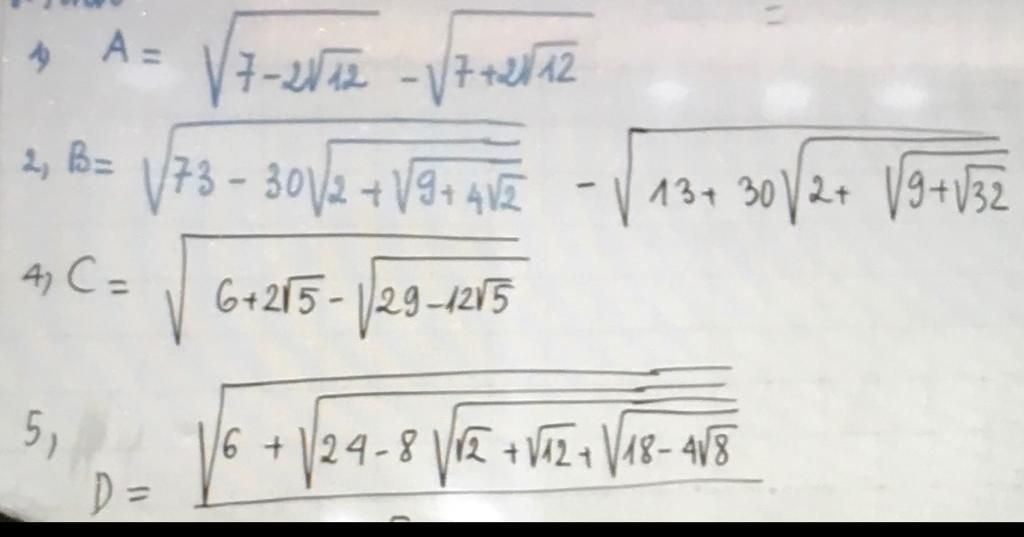 1) A = √(7 - 2√12) - √(7 + 2√12)
2, B = √(73 - 30√(2 + √(9 + 4√2))) - √(13 + 30√(2 + √(9 + √32)))
4, C = √(6 + 2√5 - √(29 - 12√5))
5, D = √(6 + √(24 - 8√(√2 + √12 + √(18 - 4√8))))